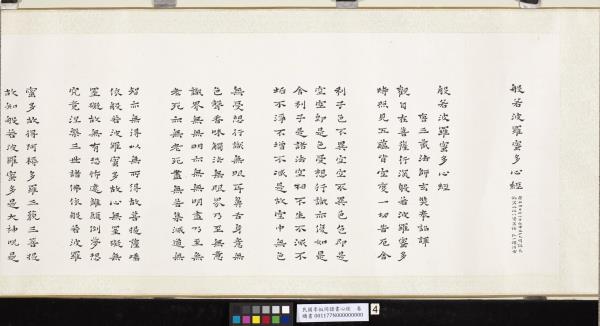 般若波羅蜜多心經
般若波羅蜜多心經
唐三藏法師玄奘奉詔譯
觀自在菩薩行深般若波羅蜜多
時照見五蘊皆空度一切苦厄舍
利子色不異空空不異色色即是
空空即是色受想行識亦復如是
舍利子是諸法空相不生不滅不
垢不淨不增不減是故空中無色
無受想行識無眼耳鼻舌身意無
色聲香味觸法無眼界乃至無意
識界無無明亦無無明盡乃至無
老死亦無老死盡無苦集滅道無
智亦無得以無所得故菩提薩埵
依般若波羅蜜多故心無罣礙無
罣礙故無有恐怖遠離顛倒夢想
究竟涅槃三世諸佛依般若波羅
蜜多故得阿耨多羅三藐三菩提
故知般若波羅蜜多是大神呪是
書心經 卷
書 001177N000000000
4